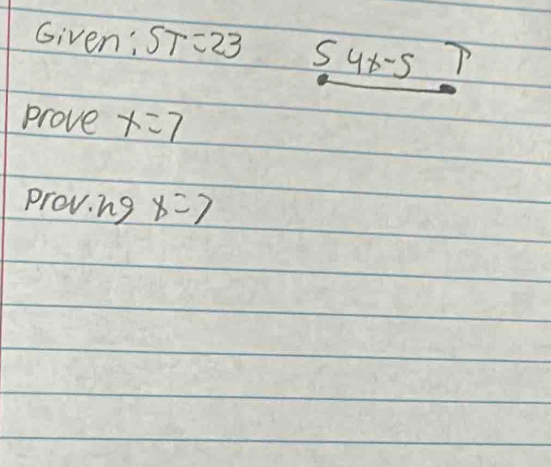 Given: ST=23
S 4x-5 T
prove x=7
proving x=7